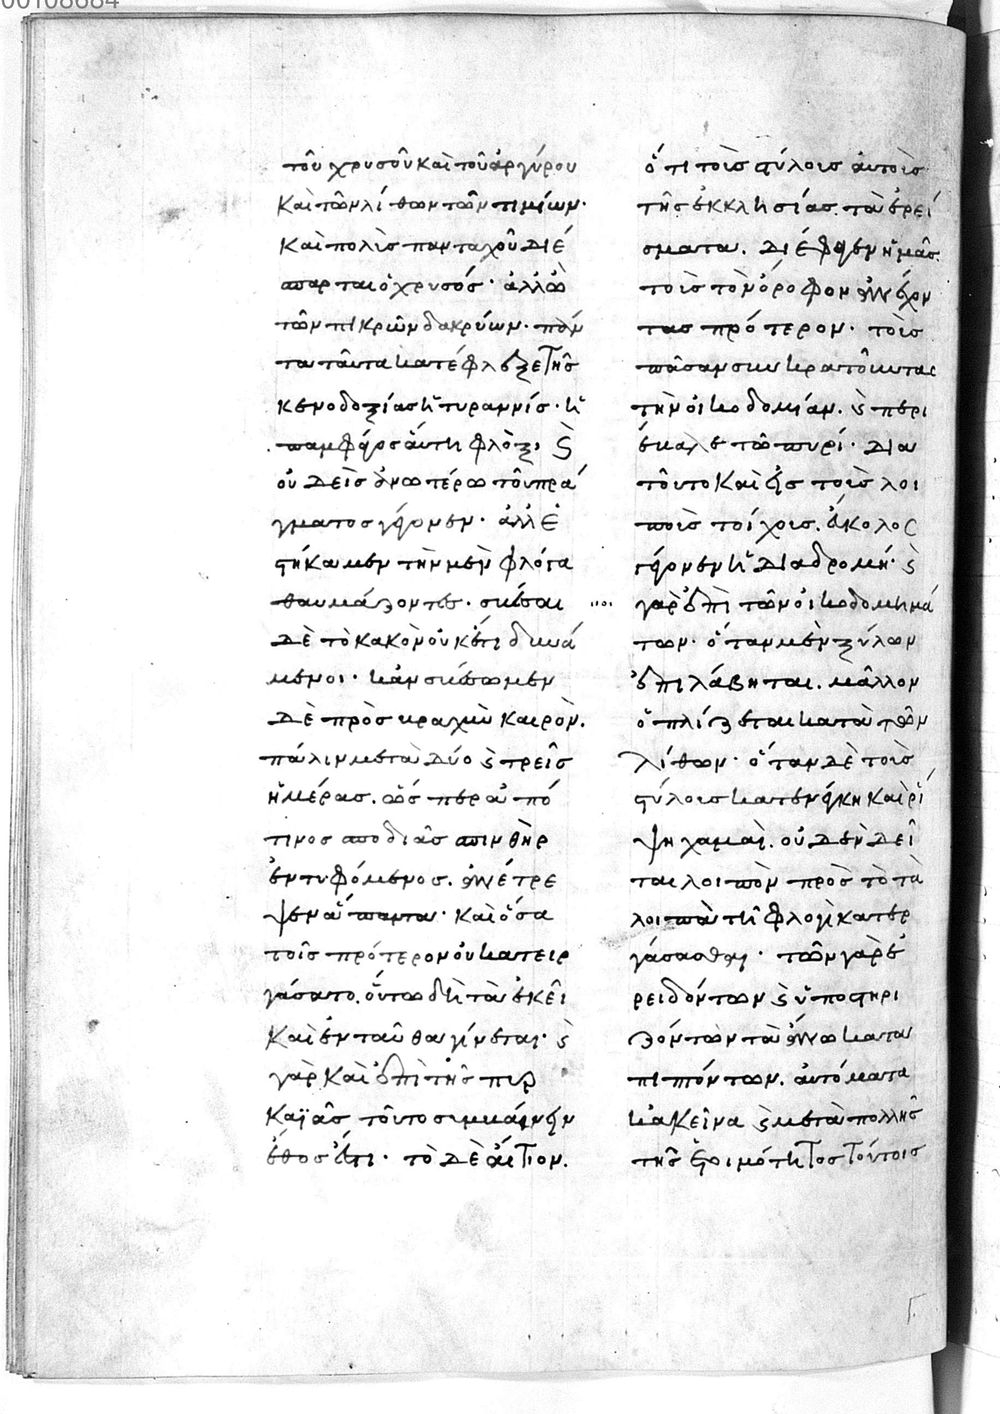 00108684
τοῦ χρυσοῦ καὶ τοῦ ἀργύρου
καὶ τῶν λίθων τῶν τιμίων·
καὶ πολὺς πανταχοῦ διέ
σπαρται ὁ χρυσός· ἀλλὰ
τῶν πικρῶν δακρύων· πάν
τα ταῦτα κατέφλεξε τῆς
κενοδοξίας ἡ τυραννίς· ἡ
παμφάγος αὕτη φλόξ· ϗ
οὐδεὶς ἀνωτέρω τοῦ πρά
γματος γέγονεν· ἀλλ' ἑ
στήκαμεν τὴν μὲν φλόγα
θαυμάζοντες· σβέσαι
δὲ τὸ κακὸν οὐκέτι δυνά
μενοι· κἂν σβέσωμεν
δὲ πρὸς βραχὺν καιρὸν.
πάλιν μετὰ δύο ϗ τρεῖς
ἡμέρας. ὥσπερ ἀπό
τινος σποδιᾶς σπινθὴρ
ἐντυφόμενος. ἀνέτρε
ψεν ἅπαντα· καὶ ὅσα
τοῖς πρότερον οὐ κατειρ
γάσατο. οὕτω δὴ τὰ ἐκεῖ
καὶ ἐνταῦθα γίνεται· ϗ
γὰρ καὶ ἐπὶ τῆς πυρ
καϊᾶς τοῦτο συμβαίνειν
ἔθος ἐστί· τὸ δὲ αἴτιον.
ὅτι τοῖς στύλοις αὐτοῖς
τῆς ἐκκλησίας. τὰ ἐρεί
σματα. διέφθειρεν ἡμᾶς
τοῖς τὸν ὄροφον ἀνέχον
τας πρότερον· τοῖς
πᾶσαν συγκρατοῦντας
τὴν οἰκοδομίαν. ϗ περι
έβαλε τῷ πυρί· διὰ
τοῦτο καὶ εἰς τοὺς λοι
ποὺς τοίχους. εὔκολος
γέγονεν ἡ διαδρομή· ϗ
γὰρ ἐπὶ τῶν οἰκοδομημά
των· ὅταν μὲν ξύλων
ἐπιλάβηται. μᾶλλον
ὁπλίζεται κατὰ τῶν
λίθων· ὅταν δὲ τοὺς
στύλους κατενέγκη καὶ ῥί
ψη χαμαὶ. οὐδὲν δεῖ
ται λοιπὸν πρὸς τὸ τὰ
λοιπὰ τῆ φλογὶ κατερ
γάσασθαι· τῶν γὰρ ἐ
ρειδόντων ϗ ὑποστηρι
ζόντων τὰ ἄνω κατα
πιπτόντων. αὐτόματα
κἀκεῖνα ϗ μετὰ πολλῆς
τῆς ἑτοιμότητος τούτοις